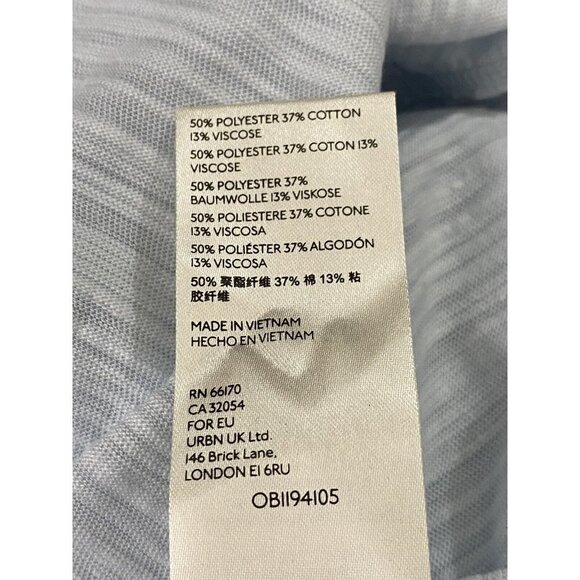 50% POLYESTER 37% COTTON
13% VISCOSE
50% POLYESTER 37% COTON 13%
VISCOSE
50% POLYESTER 37%
BAUMWOLLE 13% VISKOSE
50% POLIESTERE 37% COTONE
13% VISCOSA
50% POLIÉSTER 37% ALGODÓN
13% VISCOSA
50% 聚酯纤维 37% 棉 13% 粘
胶纤维
MADE IN VIETNAM
HECHO EN VIETNAM
RN 66170
CA 32054
FOR EU
URBN UK Ltd.
146 Brick Lane,
LONDON E1 6RU
OB1194105